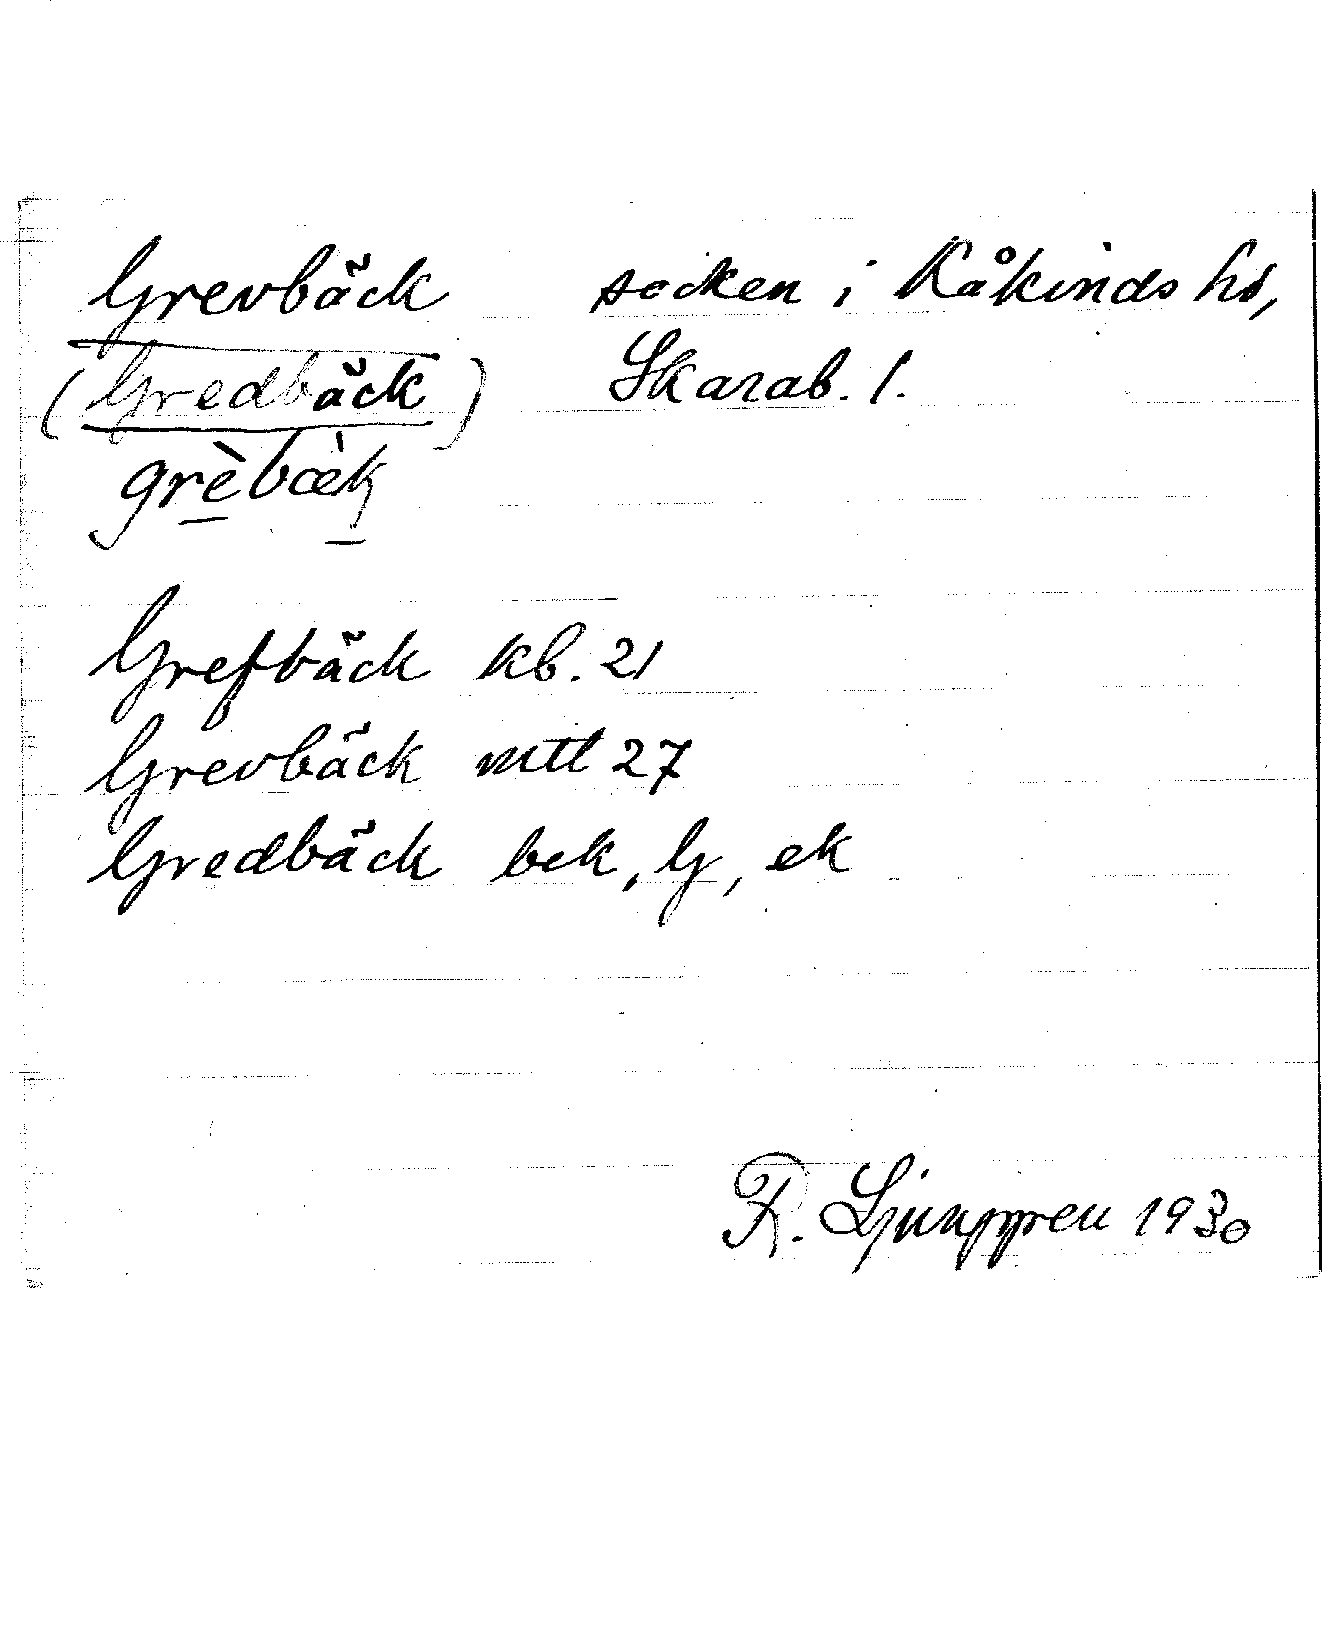 Grevbäck socken i Kåkinds hd,
(Gredbäck) Skarab. l.
grèbæ̀k
Grefbäck kb. 21
Grevbäck mtl 27
Gredbäck bek, G, ek
R. Ljunggren 1930